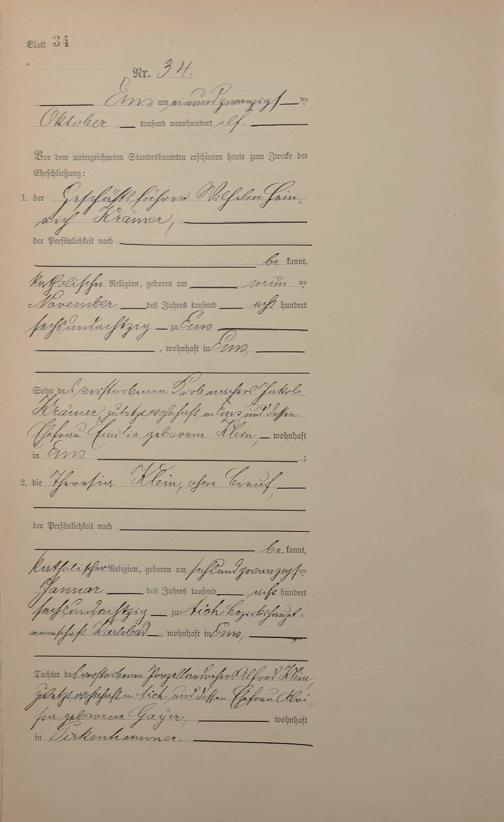 Blatt 34
Nr. 34.
Ems am einundzwanzigsten
Oktober tausend neunhundert elf.
Vor dem unterzeichneten Standesbeamten erschienen heute zum Zwecke der
Eheschließung:
1. der Geschäftsführer Wilhelm Hein-
rich Krämer,
der Persönlichkeit nach
be kannt,
katholischer Religion, geboren am neunten
November des Jahrs tausend acht hundert
sechsundachtzig zu Ems
, wohnhaft in Ems,
Sohn des verstorbenen Jakob
Krämer, zuletzt wohnhaft in Ems und dessen
Ehefrau Emilie geborene Klein, wohnhaft
in Ems ;
2. die Theresia Klein, ohne Beruf,
der Persönlichkeit nach
be kannt,
katholischer Religion, geboren am sechsundzwanzigsten
Januar des Jahrs tausend acht hundert
sechsundachtzig zu Aich Bezirkshaupt-
mannschaft Karlsbad, wohnhaft in Ems,
Tochter des verstorbenen Porzellandrehers Alfred Klein,
zuletzt wohnhaft in Aich und dessen Ehefrau
geborene Gayer, wohnhaft
in Pirkenhammer.